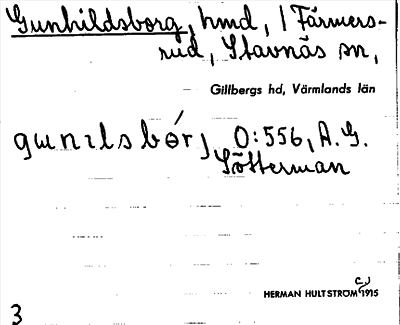 Gunhildsborg, hmd, / Färmers-
rud, Stavnäs sn,
Gillbergs hd, Värmlands län
gɯnɩlsbór j O:556, A.G.
Sötterman
HERMAN HULTSTRÖM 1915
3